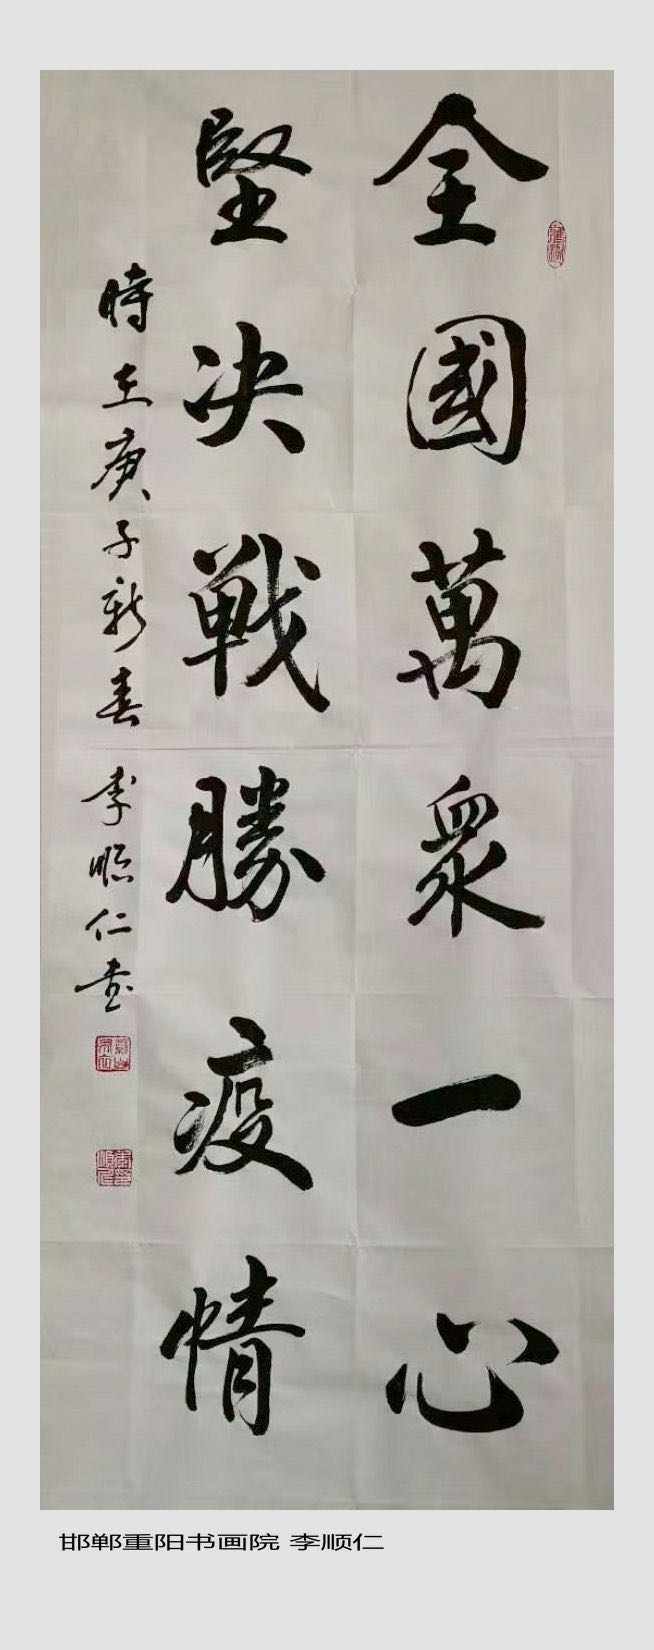 全國萬衆一心
堅决戰勝疫情
時在庚子新春 李順仁書
邯郸重阳书画院 李顺仁